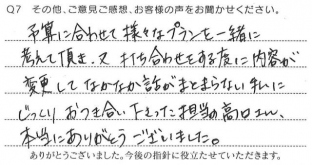 Q7 その他、ご意見ご感想、お客様の声をお聞かせください。
予算に合わせて様々なプランを一緒に
考えて頂き、又 打ち合わせをする度に内容が
変更してなかなか話がまとまらない私に
じっくりおつき合い下さった担当の高口さん、
本当にありがとうございました。
ありがとうございました。今後の指針に役立たせていただきます。